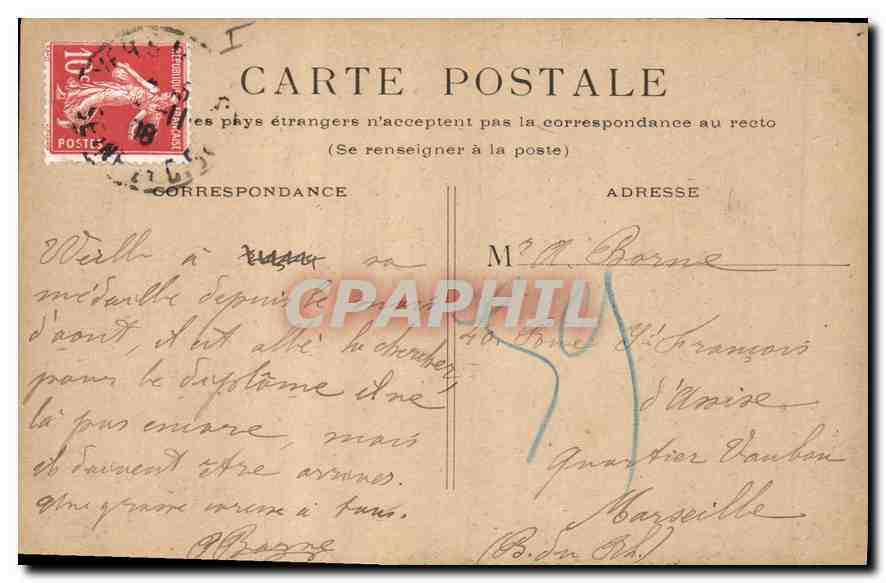 10c
REPUBLIQUE FRANÇAISE
POSTES
18
I
CARTE POSTALE
les pays étrangers n'acceptent pas la correspondance au recto
(Se renseigner à la poste)
CORRESPONDANCE
à sa
médaille depuis le mois
d'aout, il est allé la chercher,
pour le diplôme il ne
là pas encore, mais
ils doivent être arrivés.
une grosse caresse à tous.
ADRESSE
Mr A. Borne
40, St François
d'Assise
quartier Vauban
Marseille
(B. du Rh.)
CPAPHIL